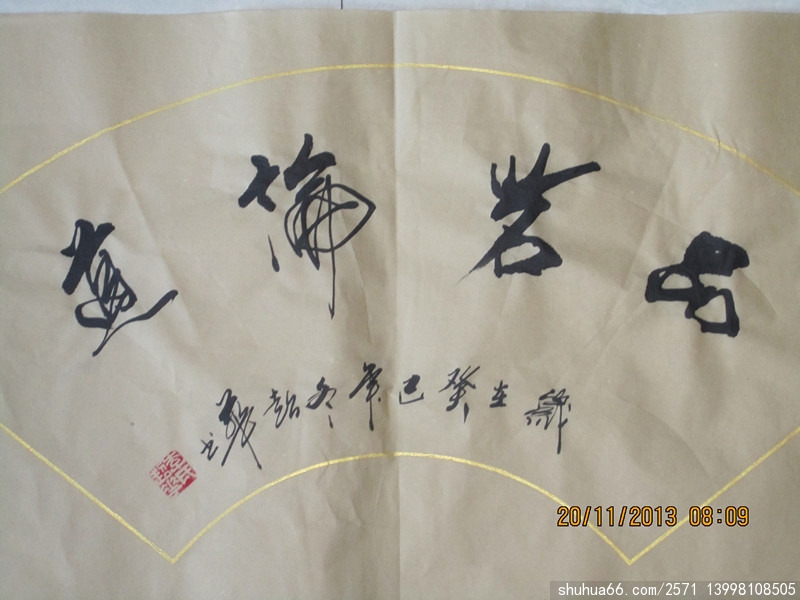 品茗論道
在癸巳年冬
20/11/2013 08:09
shuhua66.com/2571 13998108505